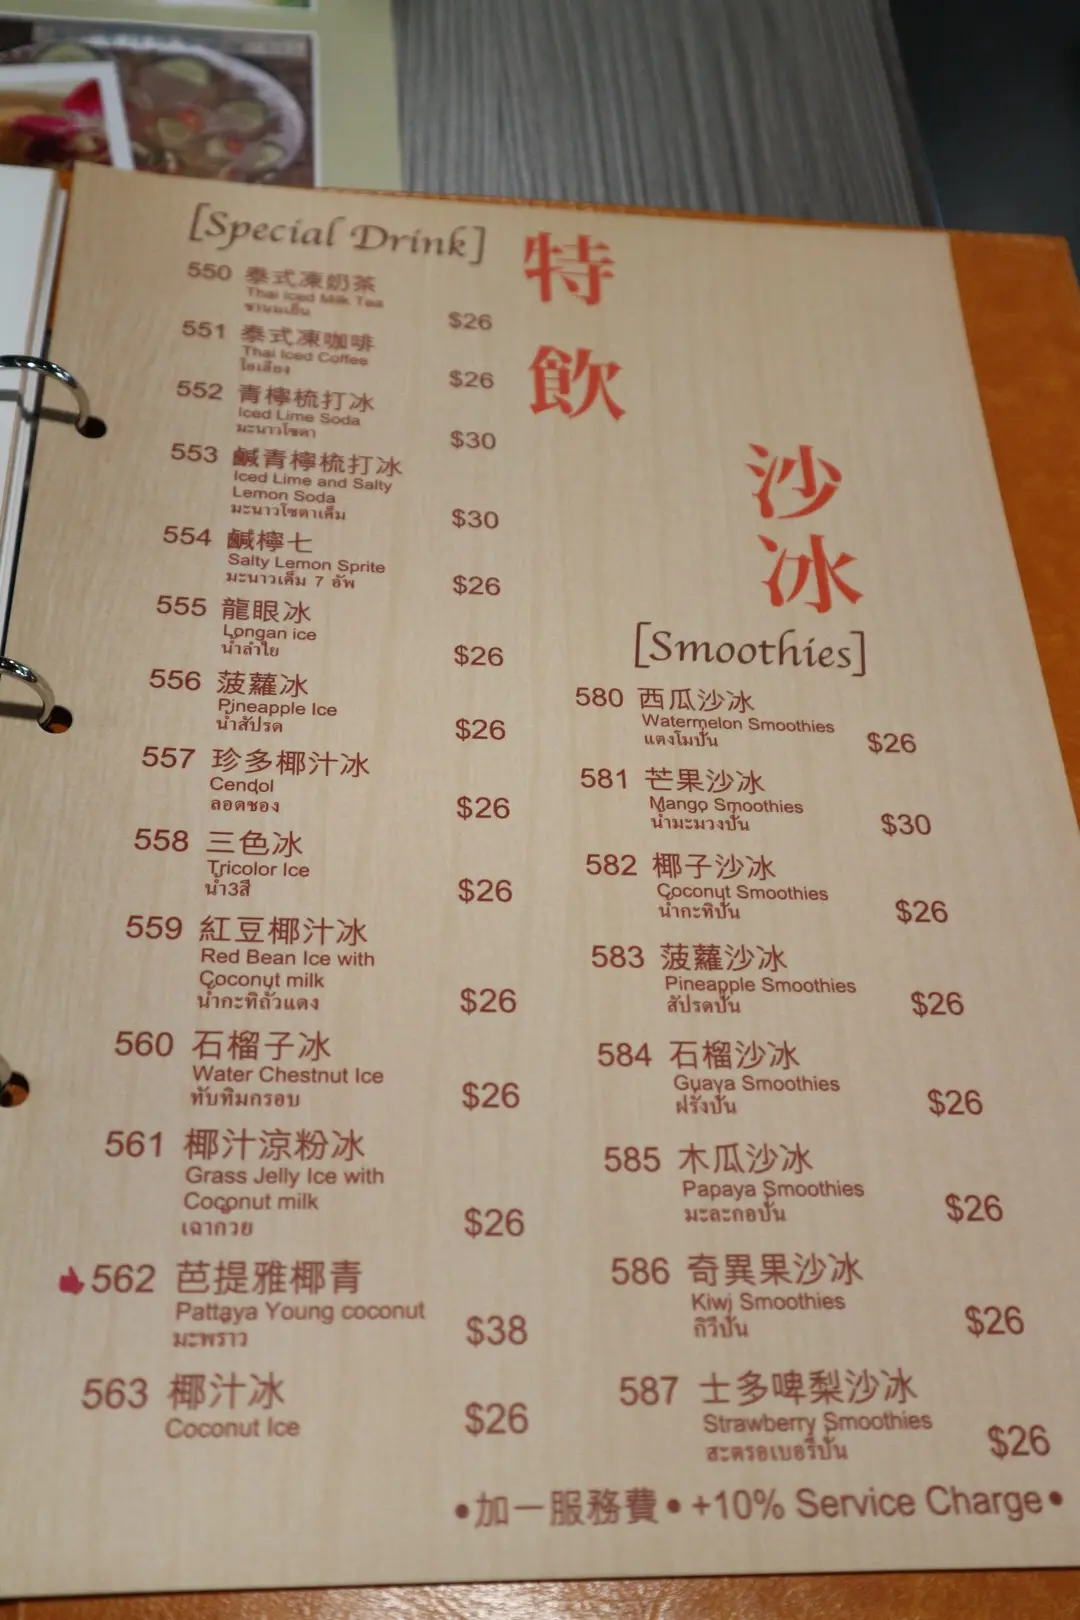 [Special Drink]
特飲
550 泰式凍奶茶
Thai Iced Milk Tea
ชานมเย็น
$26
551 泰式凍咖啡
Thai Iced Coffee
โอเลี้ยง
$26
552 青檸梳打冰
Iced Lime Soda
มะนาวโซดา
$30
553 鹹青檸梳打冰
Iced Lime and Salty
Lemon Soda
มะนาวโซดาเค็ม
$30
554 鹹檸七
Salty Lemon Sprite
มะนาวเค็ม 7 อัพ
$26
555 龍眼冰
Longan ice
น้ำลำใย
$26
556 菠蘿冰
Pineapple Ice
น้ำสัปรด
$26
557 珍多椰汁冰
Cendol
ลอดช่อง
$26
558 三色冰
Tricolor Ice
น้ำ3สี
$26
559 紅豆椰汁冰
Red Bean Ice with
Coconut milk
น้ำกะทิถั่วแดง
$26
560 石榴子冰
Water Chestnut Ice
ทับทิมกรอบ
$26
561 椰汁涼粉冰
Grass Jelly Ice with
Coconut milk
เฉาก๊วย
$26
562 芭提雅椰青
Pattaya Young coconut
มะพร้าว
$38
563 椰汁冰
Coconut Ice
$26
沙冰
[Smoothies]
580 西瓜沙冰
Watermelon Smoothies
แตงโมปั่น
$26
581 芒果沙冰
Mango Smoothies
น้ำมะม่วงปั่น
$30
582 椰子沙冰
Coconut Smoothies
น้ำกะทิปั่น
$26
583 菠蘿沙冰
Pineapple Smoothies
สัปรดปั่น
$26
584 石榴沙冰
Guava Smoothies
ฝรั่งปั่น
$26
585 木瓜沙冰
Papaya Smoothies
มะละกอปั่น
$26
586 奇異果沙冰
Kiwi Smoothies
กีวีปั่น
$26
587 士多啤梨沙冰
Strawberry Smoothies
สะตรอเบอรี่ปั่น
$26
•加一服務費• +10% Service Charge•